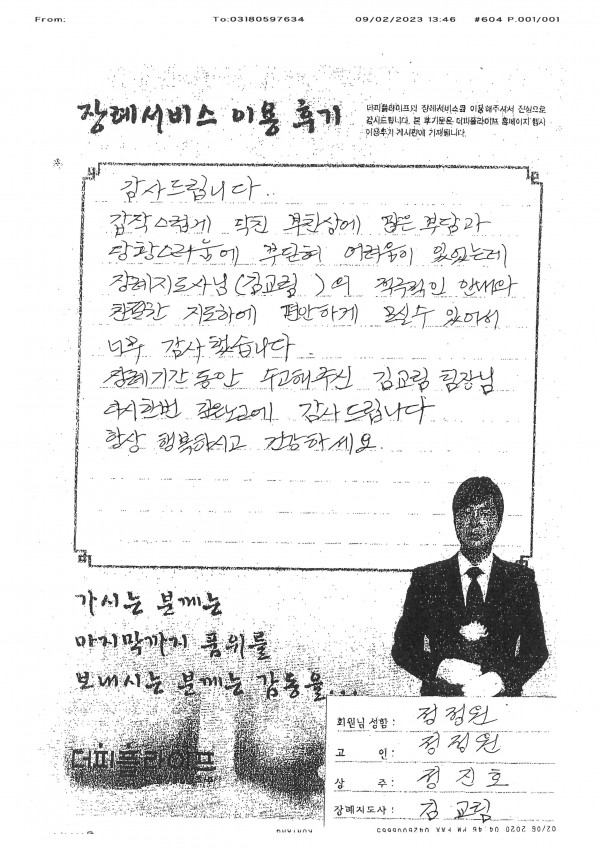 From: To:03180597634 09/02/2023 13:46 #604 P.001/001
장례서비스 이용 후기
더피플라이프의 장례서비스를 이용해주셔서 진심으로
감사드립니다. 본 후기문은 더피플라이프 홈페이지 행사
이용후기 게시판에 기재됩니다.
감사드립니다..
갑작스럽게 닥친 부친상에 많은 부담과
당황스러움에 무던히 어려움이 있었는데
장례지도사님(김교림 )의 적극적인 안내와
친절한 지도하에 편안하게 모실수 있어서
너무 감사했습니다.
장례기간동안 수고해주신 김교림 팀장님
다시한번 노고에 감사드립니다
항상 행복하시고 건강하세요.
가시는 분께는
마지막까지 품위를
보내시는 분께는 감동을...
더피플라이프
회원님 성함 : 정정원
고 인 : 정정원
상 주 : 정진호
장례지도사 : 김교림